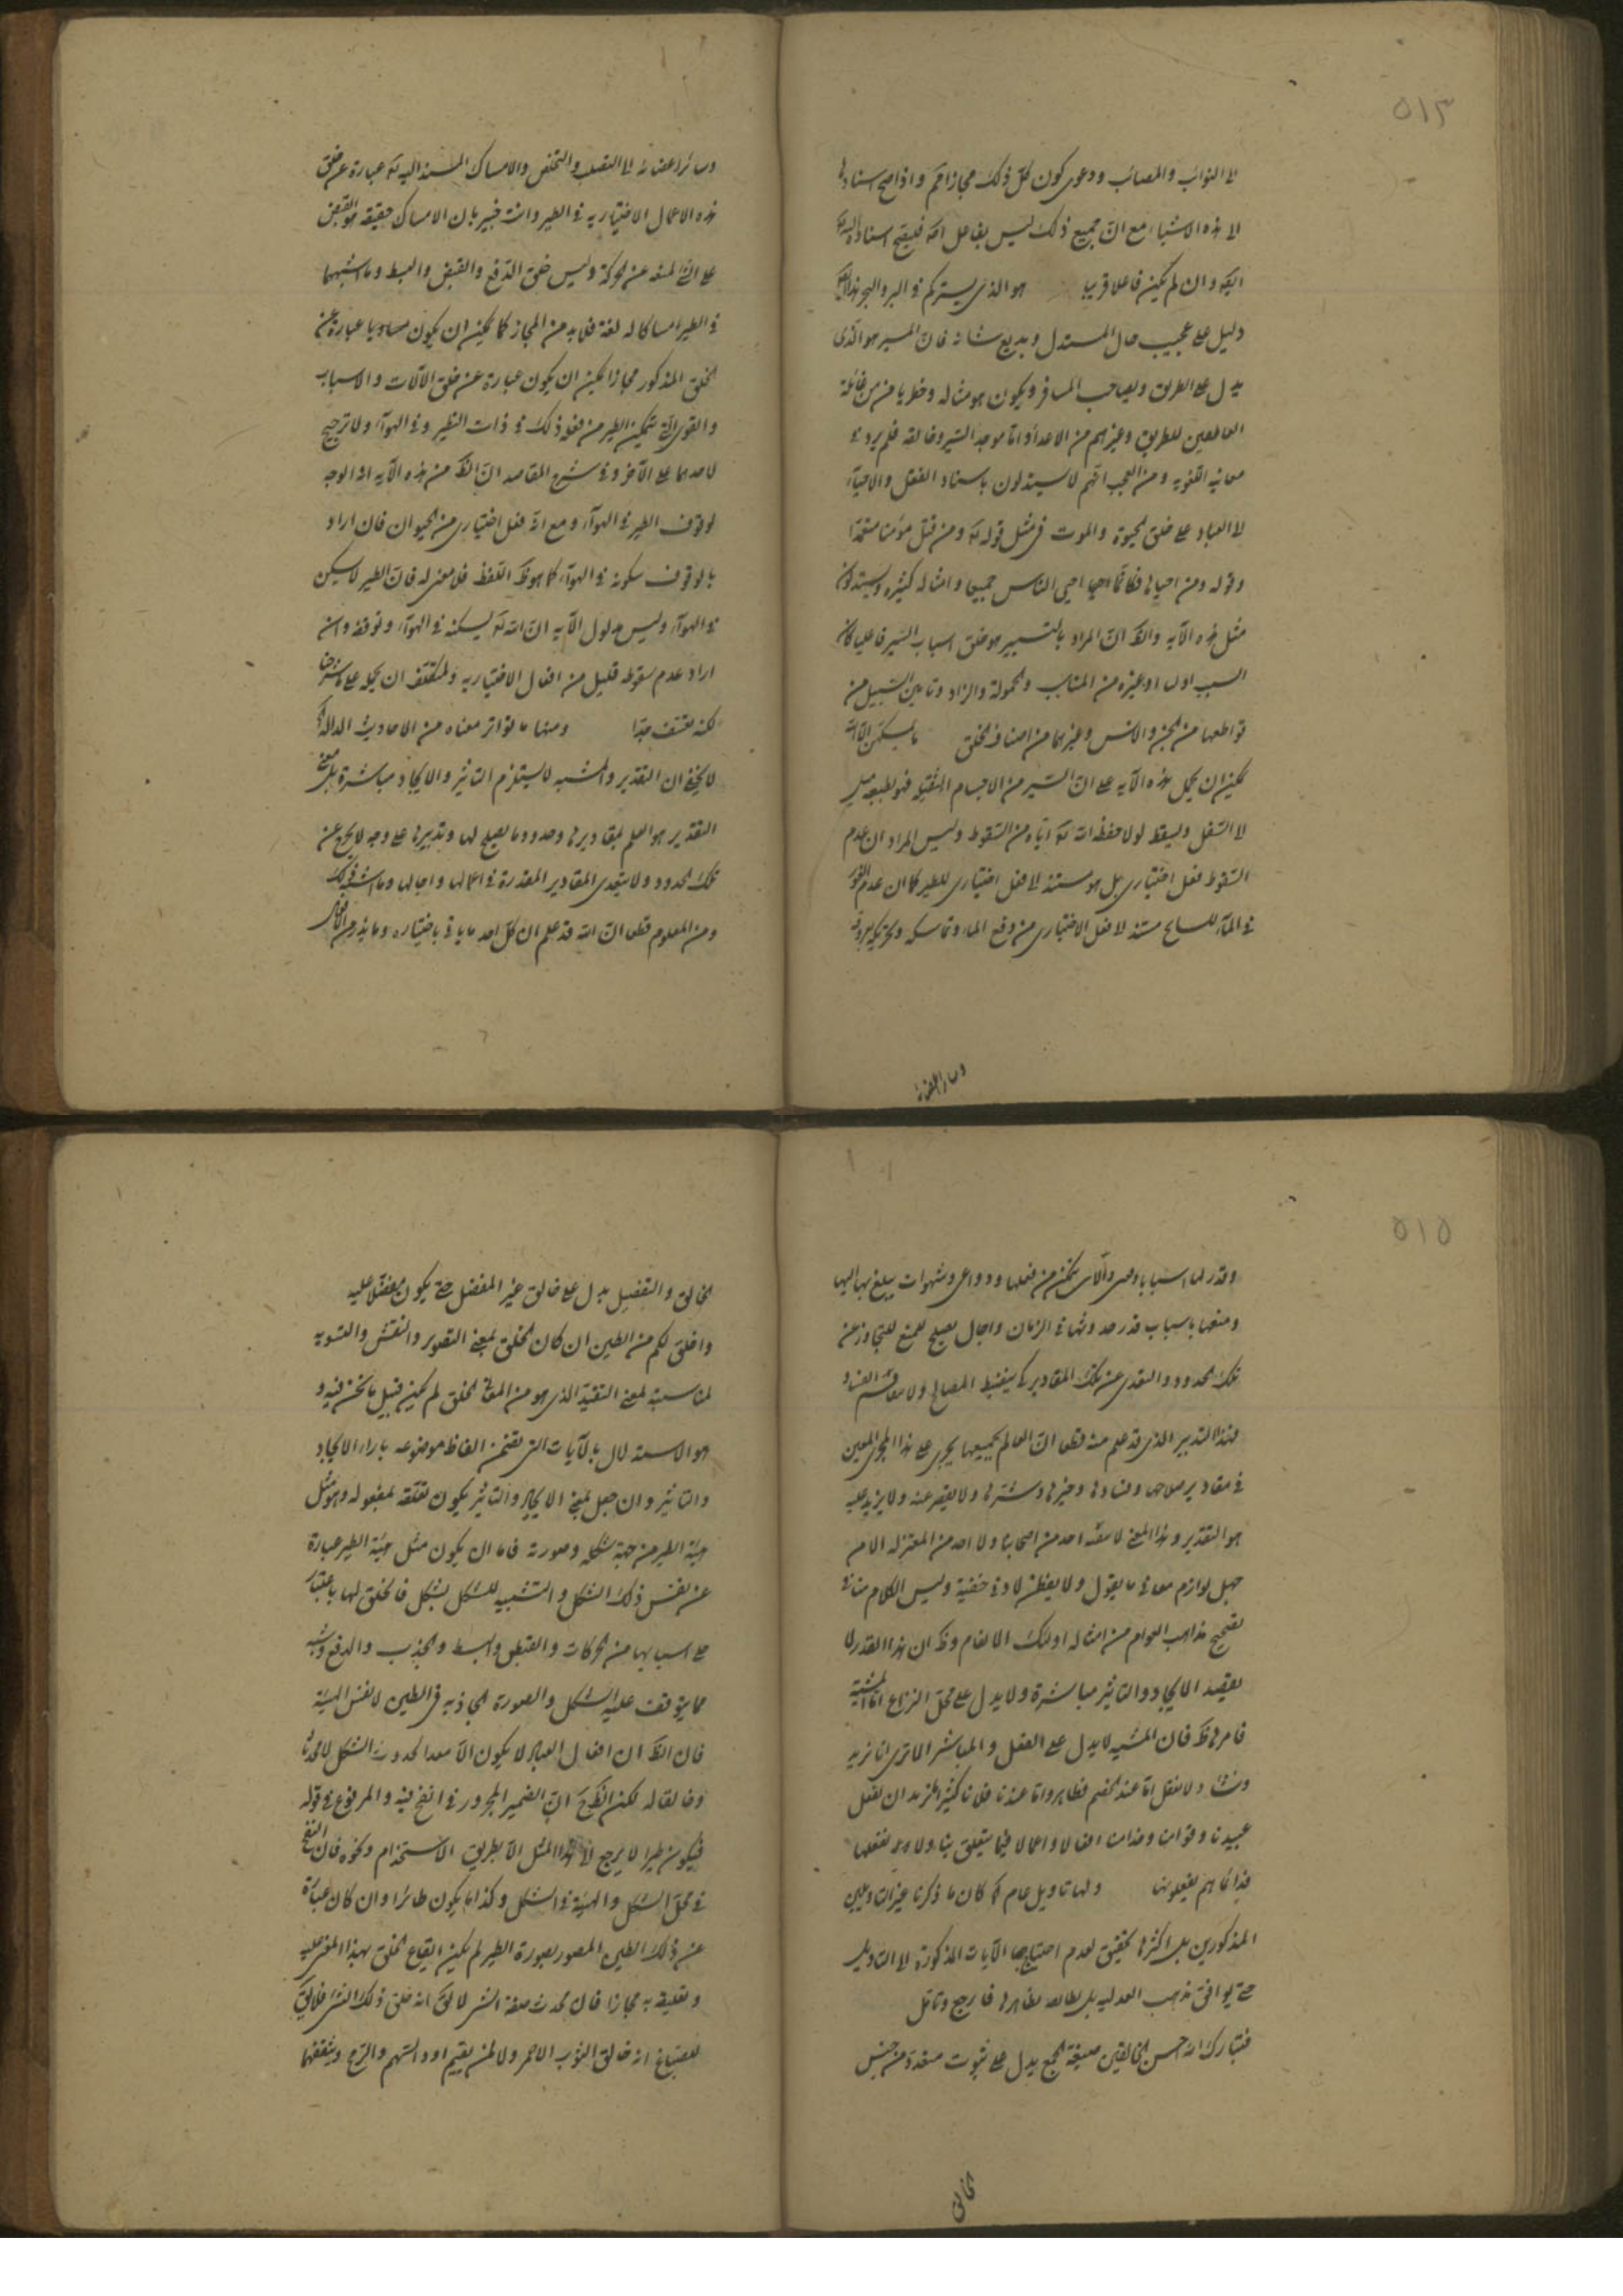 ٥١٣
الى النوائب والمصائب ودعوى كون كل ذلك مجازا فيم واذا صح اسنادها
الى هذه الاشياء مع ان جميع ذلك ليس بفاعل اتفاقا فليصح اسناده اليه تعالى
ايضا وان لم يكن فاعلا قريبا هو الذي يسيركم في البر والبحر هذا
دليل على عجيب حال المستدل وبديع شانه فان المسير هو الذى
يدل على الطريق ويصاحب المسافر ويكون هو مثاله من غائلة
القاطعين للطريق وغيرهم من الاعداء واما موجد السير وخالقه فلم يرد في
معانيه اللغويه ومن العجب انهم لا يستدلون باسناد القتل والاحياء
الى العباد على خلق الحيوة والموت في مثل قوله تع ومن قتل مؤمنا متعمدا
وقوله ومن احياها فكانما احيا الناس جميعا وامثاله كثيره ويستدلون
مثل هذه الآيه والظ ان المراد بالتسيير هو خلق اسباب السير فاعليا كان
السبب اولا او غيره من المناسب والحمولة والزاد وتامين السبيل من
قواطعها من الجن والانس وغيرهما من اصناف الخلق ما يمسكهن الا الله
يمكن ان يحمل هذه الآيه على ان السير من الاجسام الثقيله فهو بطبعه يميل
الى السفل ويسقط لولا حفظ الله تع اياه من السقوط وليس المراد ان عدم
السقوط فعل اختيارى بل هو مستند الى فعل اختيارى للطير كما ان عدم
في الماء للسابح مستند لا فعل الاختيارى من دفع الماء وتماسكه وتحريك يديه
وسائر اعضائه
وسائر اعضائه الى التقلب والتخلص والامساك المسند اليه تع عبارة عن خلق
هذه الاعمال الاختياريه في الطير وانت خبير بان الامساك حقيقة هو القبض
على الشئ لمنعه عن الحركة وليس خلق الدفع والقبض والبسط وما اشبهها
في الطير امساكا له لغة فلا بد من المجاز كما يمكن ان يكون مساويا عبارة عن
الخلق المذكور مجازا يمكن ان يكون عبارة عن خلق الآلات والاسباب
والقوى التي تمكن الطير من فعله ذلك في ذات الطير وفي الهواء ولا ترجيح
لاحدهما على الآخر وفي شرح المقاصد ان الظ من هذه الآيه انه الموجد
لوقوف الطير في الهواء ومع انه فعل اختيارى من الحيوان فان اراد
بالوقوف سكونه في الهواء كما هو ظ اللفظ فلا معنى له فان الطير لا يسكن
في الهواء وليس مدلول الآيه ان الله تع يسكنه في الهواء ويوقفه وان
اراد عدم سقوطه فليس من افعال الاختياريه وللمتكلف ان يحمله على ما شرحنا
لكنه تعسف جدا ومنها ما تواتر معناه من الاحاديث الدالة
لا يخفى ان التقدير والمشيه لا يستلزم التاثير والايجاد مباشرة بل معنى
التقدير هو العلم بمقاديرها وحدودها بما يصلح لها وتدبيرها على وجه لا يخرج عن
تلك الحدود ولا يتعدى المقادير المقدرة في اعمالها واجالها وما اشبه ذلك
ومن المعلوم قطعا ان الله قد علم ان كل احد ما ياتى باختياره وما يذر من الافعال
٥١٥
وقدر لها اسبابا وقوى وآلات يمكن من فعلها ودواعى وشهوات يبلغ بها اليها
ومنعها باسباب قدر حدوثها في الزمان واجال يصلح للمنع للتجاوز عن
تلك الحدود والتعدى عن تلك المقادير كي ينضبط المصالح ولا يتفاقم الفساد
فهذا التدبير الذى قد علم منه قطعا ان العالم بجميعها يجرى على هذا المجرى المعين
في مقادير صلاحها وفسادها وخيرها وشرها ولا يقصر عنه ولا يزيد عليه
هو التقدير وهذا المعنى لا ينفيه احد من اصحابنا ولا احد من المعتزله الا من
جهل لوازم معانى ما يقول ولا يفطن لادنى خفية وليس الكلام منا في
تصحيح مذاهب العوام من امثاله اولئك الانعام وظ ان هذا القدر لا
يفيد الايجاد والتاثير مباشرة ولا يدل على محل النزاع اما المشية
فامرها ظ فان المشيه لا يدل على الفعل والمباشر الا ترى انا نريد
ونشاء ولا نفعل اما عند الخصم فظاهر واما عندنا فلانا كثيرا نريد ان يفعل
عبيدنا وقوامنا وخدامنا افعالا واعمالا فيما يتعلق بنا ولا نفعلها
فذا انما هم يفعلونها ولها تاويل عام لما كان ما ذكرنا غير التاويلين
المذكورين بل اكثرها تحقيق لعدم احتياجها الآيات المذكورة الى التاويل
حتى يوافق مذهب العدليه بل يطابقه بظاهرها فارجع وتامل
فتبارك الله احسن الخالقين صيغة الجمع يدل على ثبوت متعدد من جنس
الخالق
الخالق والتفضيل يدل على خالق غير المفضل حتى يكون مفضلا عليه
واخلق لكم من الطين ان كان الخلق بمعنى التصوير والنقش والتسويه
لمناسبة لمعنى التقدير الذى هو من المعانى الخلق لم يكن قبيل ما نحن فيه و
هو الاستدلال بالآيات التى تضمن الفاظ موضوعه بازاء الايجاد
والتاثير وان جعل بمعنى الايجاد والتاثير يكون تعلقه بمفعوله وهو مثل
هيئة الطير من جهة شكله وصورته فاما ان يكون مثل هيئة الطير عبارة
عن نفس ذلك الشكل والتشبيه للشكل بشكل فالخلق لها باعتبار
على اسبابها من الحركات والقبض والبسط والجذب والدفع وشبه
مما يتوقف عليه الشكل والصورة الجاذبه في الطين لا نفس الهيئة
فان الظ ان افعال العباد لا يكون الا معدا لحدوث الشكل لا محدثا
وخالقا له لكن الظ ح ان الضمير المجرور في انفخ فيه والمرفوع في قوله
فيكون طيرا لا يرجع الى هذا المثل الا بطريق الاستخدام ونحوه فان النفخ
في محل الشكل والهيئة في الشكل وكذا ما يكون طائرا وان كان عبارة
عن ذلك الطين المصور بصورة الطير لم يكن ايقاع الخلق بهذا المعنى عليه
وتعليقه به مجازا فان محدث صفة الشئ لا يقال انه خلق ذلك الشئ فلا يقال
للصباغ انه خالق الثوب الاحمر ولا لمن يقيم اود السهم والرمح ويثقفهما